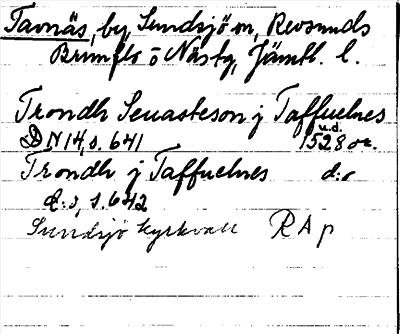 Tavnäs, by, Sundsjö sn, Revsunds
Brunflo o Näsby, Jämtl. l.
Trondh Seuasteson j Taffuelnes
DN 14, s. 641 u.d. 1528 or.
Trondh j Taffuelnes d:o
d:o, s. 642
Sundsjö kyrkvall RAp